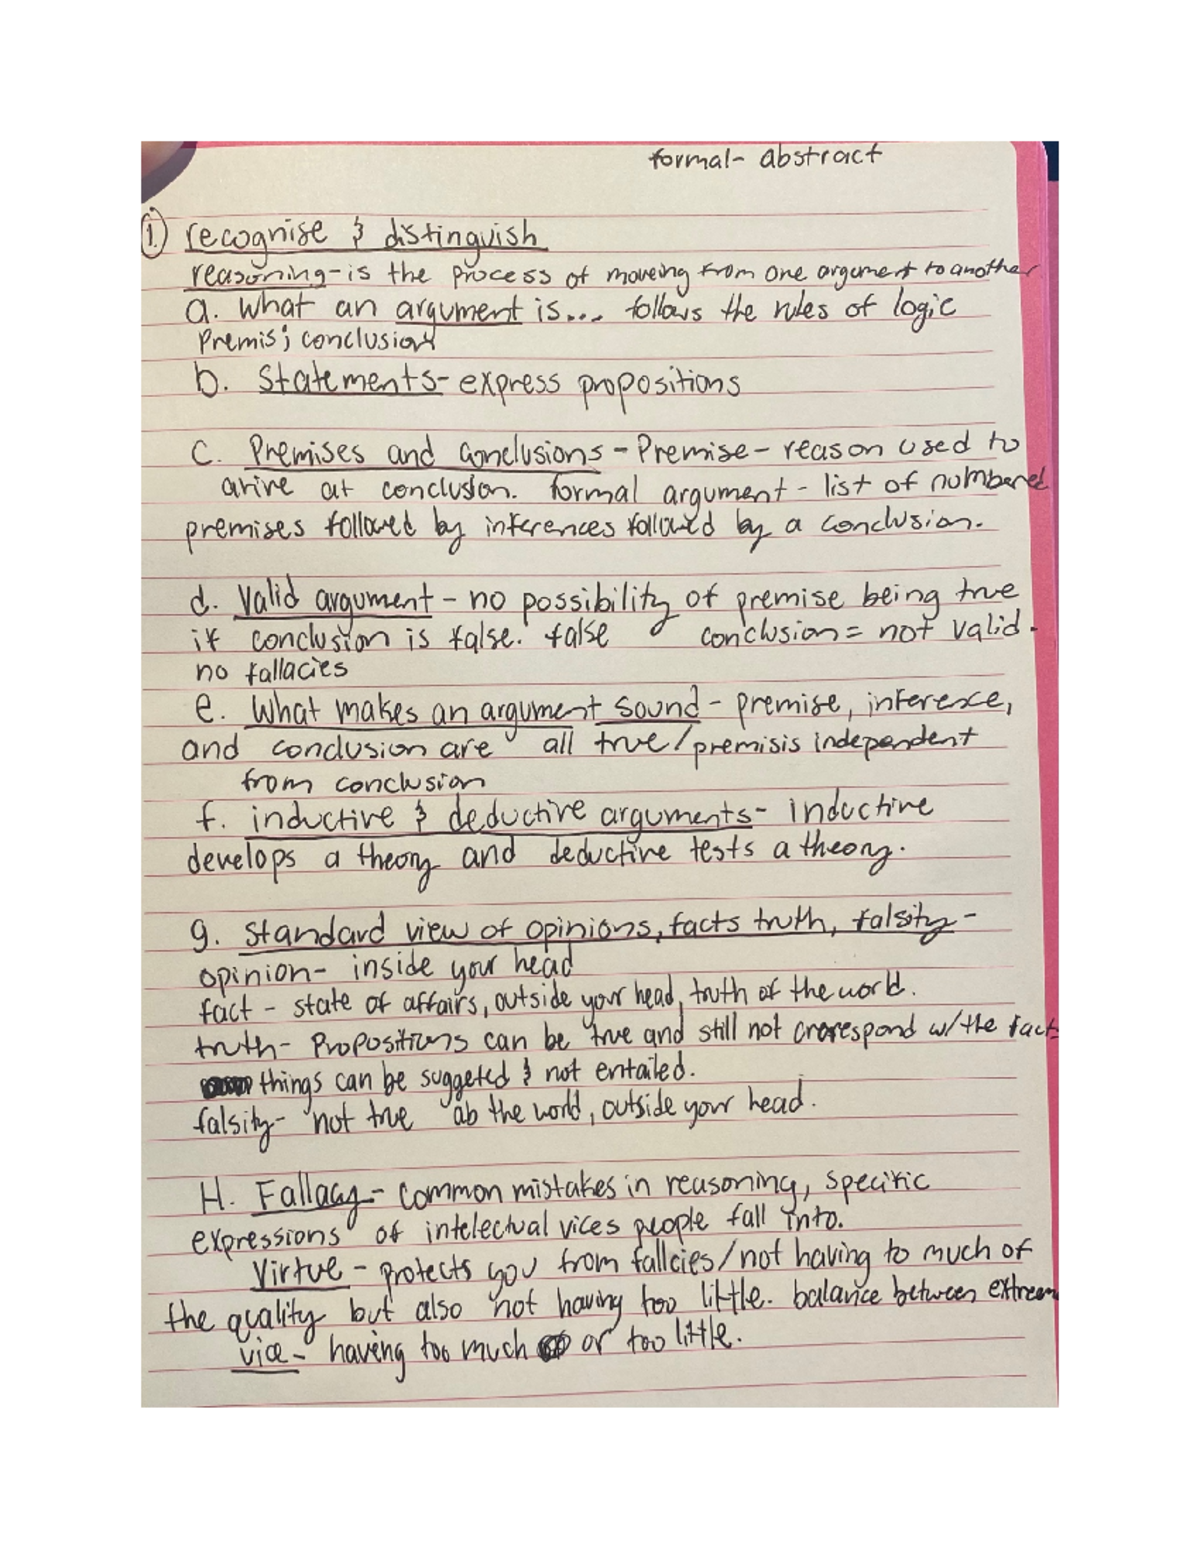 formal- abstract
1. recognise & distinguish
reasoning- is the process of moveing from one argument to another
a. What an argument is... follows the rules of logic
Premis; conclusion
b. Statements- express propositions
C. Premises and Conclusions - Premise - reason used to
arive at conclusion. formal argument - list of numbered
premises followed by inferences followed by a conclusion.
d. Valid argument - no possibility of premise being true
if conclusion is false. false conclusion = not valid.
no fallacies
e. What makes an argument sound - premise, inference,
and conclusion are all true / premisis independent
from conclusion
f. inductive & deductive arguments- inductive
develops a theory and deductive tests a theory.
g. Standard view of opinions, facts truth, falsity -
opinion- inside your head
fact - state of affairs, outside your head, truth of the world.
truth- Propositions can be true and still not crorespond w/the fact
things can be suggeted & not entailed.
falsity- not true ab the world, outside your head.
H. Fallacy- common mistakes in reasoning, specific
expressions of intelectual vices people fall into.
Virtue - protects you from fallcies/not having to much of
the quality but also not having too little. balance between extrem
vice- having too much or too little.